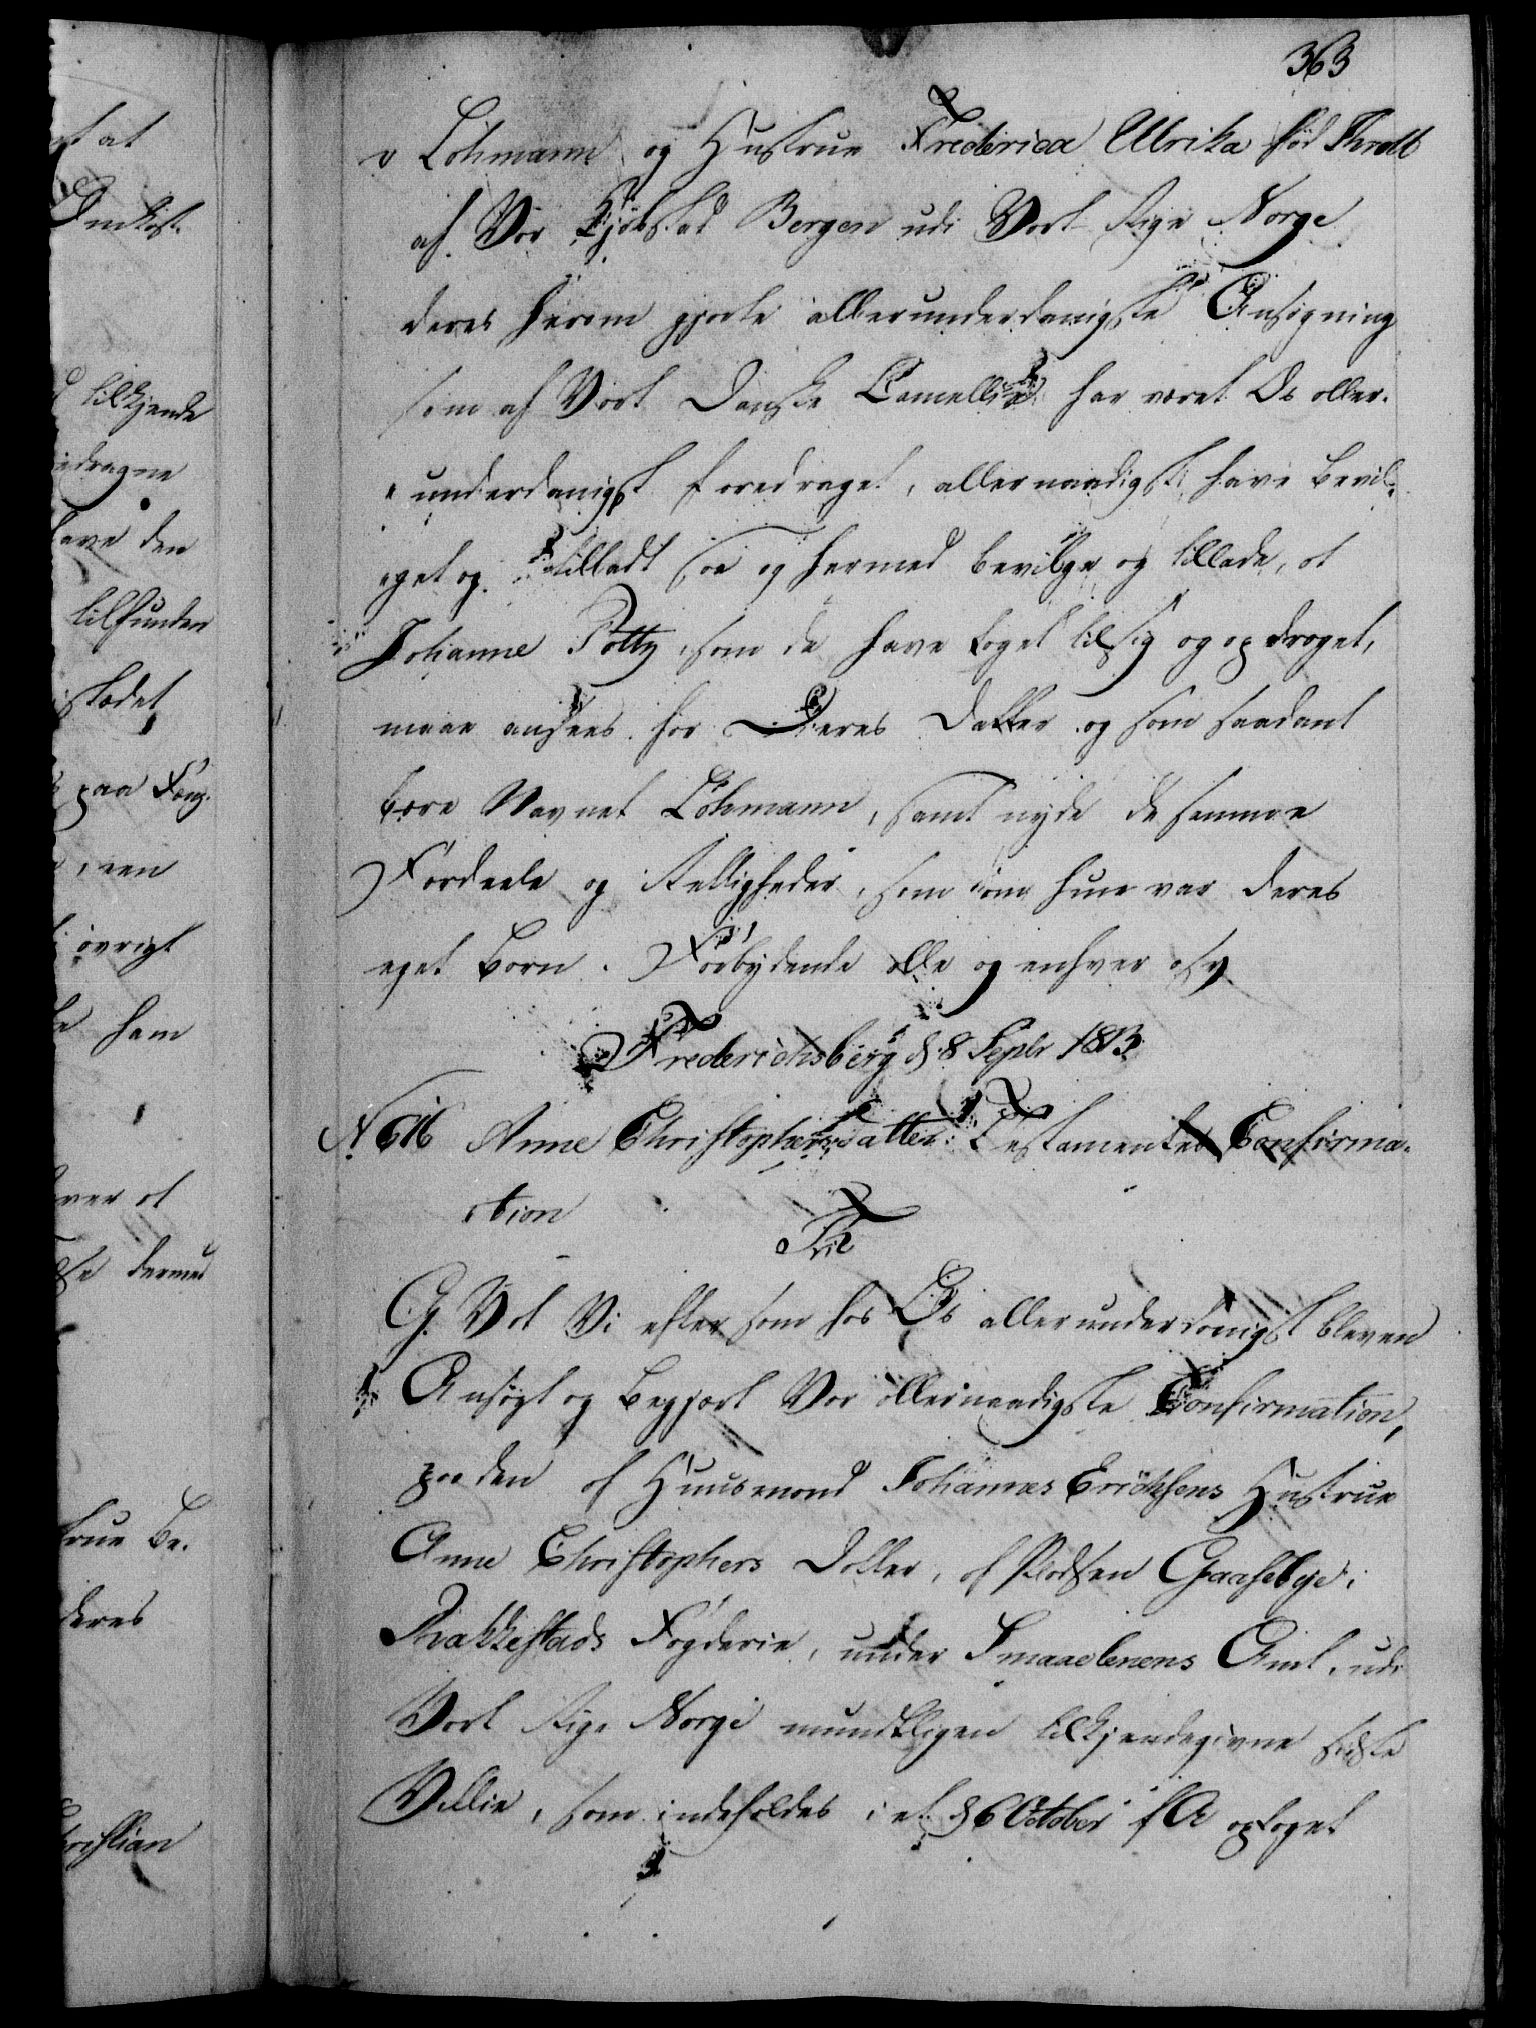 363
v Løhmann og Hustrue Frederica Ulrika fød
af Vor Kjøbstad Bergen udi Vort Rige Norge
deres herom gjorte allerunderdanigste Ansøgning
som af Vort Danske Cancellie har været Os aller-
underdanigst foredraget, allernaadigst have bevil-
get og tilladt saa og hermed bevilge og tillade, at
Johanne Potty, som de have taget til sig og opdraget,
maae ansees for Deres Datter og som saadant
bære Navnet Løhmann, samt nyde de samme
Fordeele og Rettigheder, som om hun var deres
eget Barn. Forbydende alle og enhver osv
Frederichsberg d. 8 Septr 1813
N 616 Anne Christophersdatter Testamentes Confirma-
tion
G. V at Vi efter som hos Os allerunderdanigst bleven
Ansøgt og begjært Vor allernaadigste Confirmation,
paa den af Huusmand Johannes Erichsens Hustrue
Anne Christophers Datter, af Pladsen Gaasebye i
Rakkestads Fogderie, under Smaalenens Amt, udi
Vort Rige Norge mundtligen tilkjendegivne sidste
Villie, som indeholdes i et d 6 October f A optaget
at
tilkjende
dragne
have den
tilfunden
stædet
paa Fong.
, een
øvrigt
ham
ver at
dermed
true Be-
deres
Christian